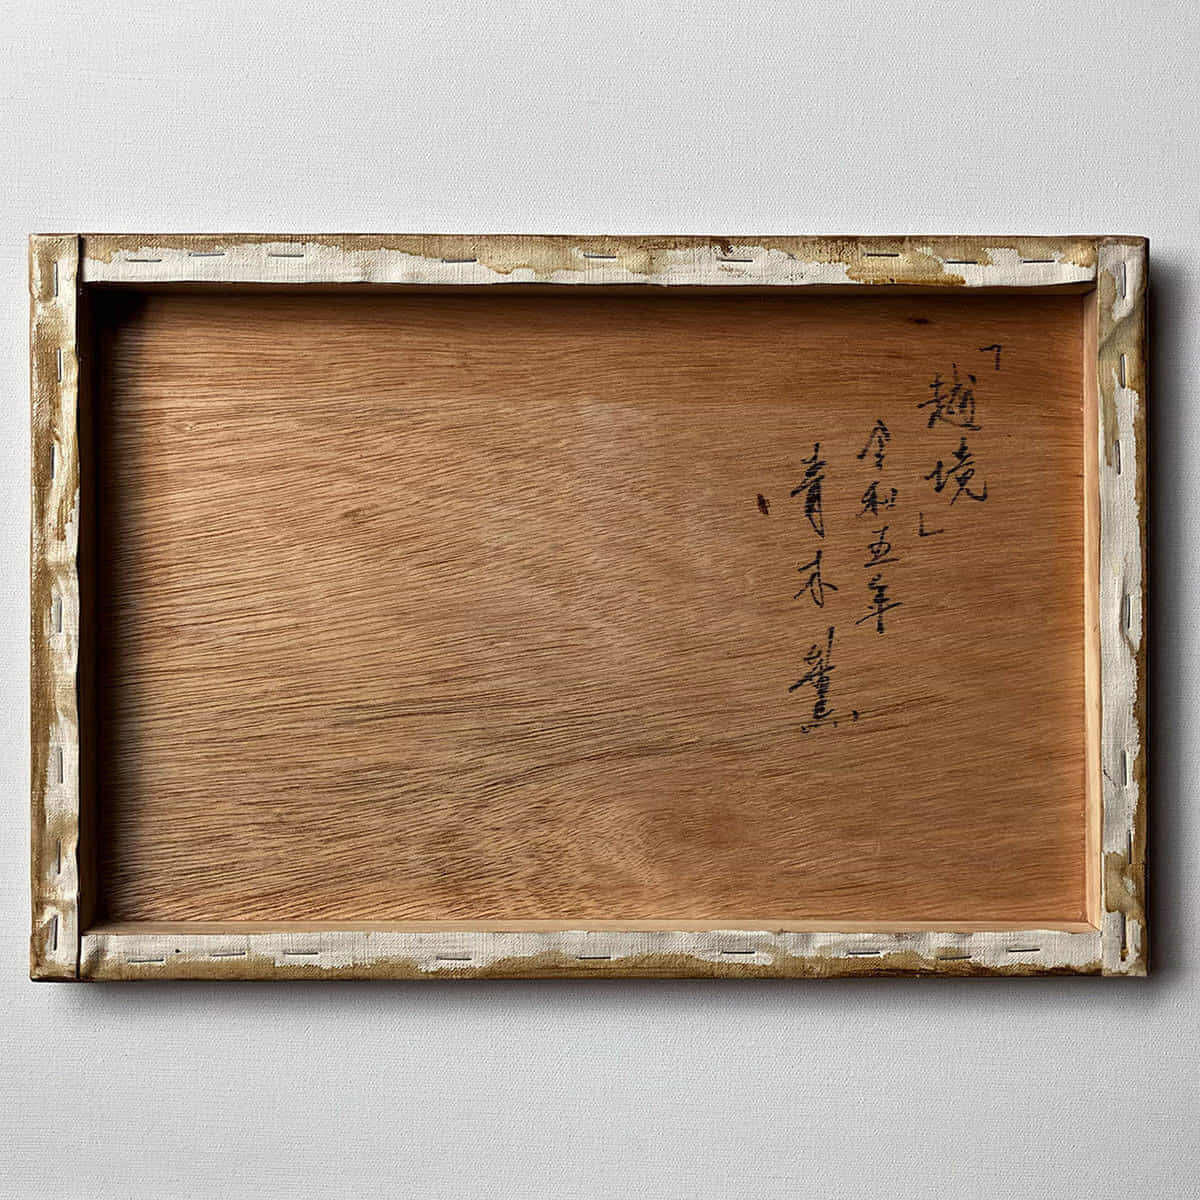 「越境」
令和五年
青木薫